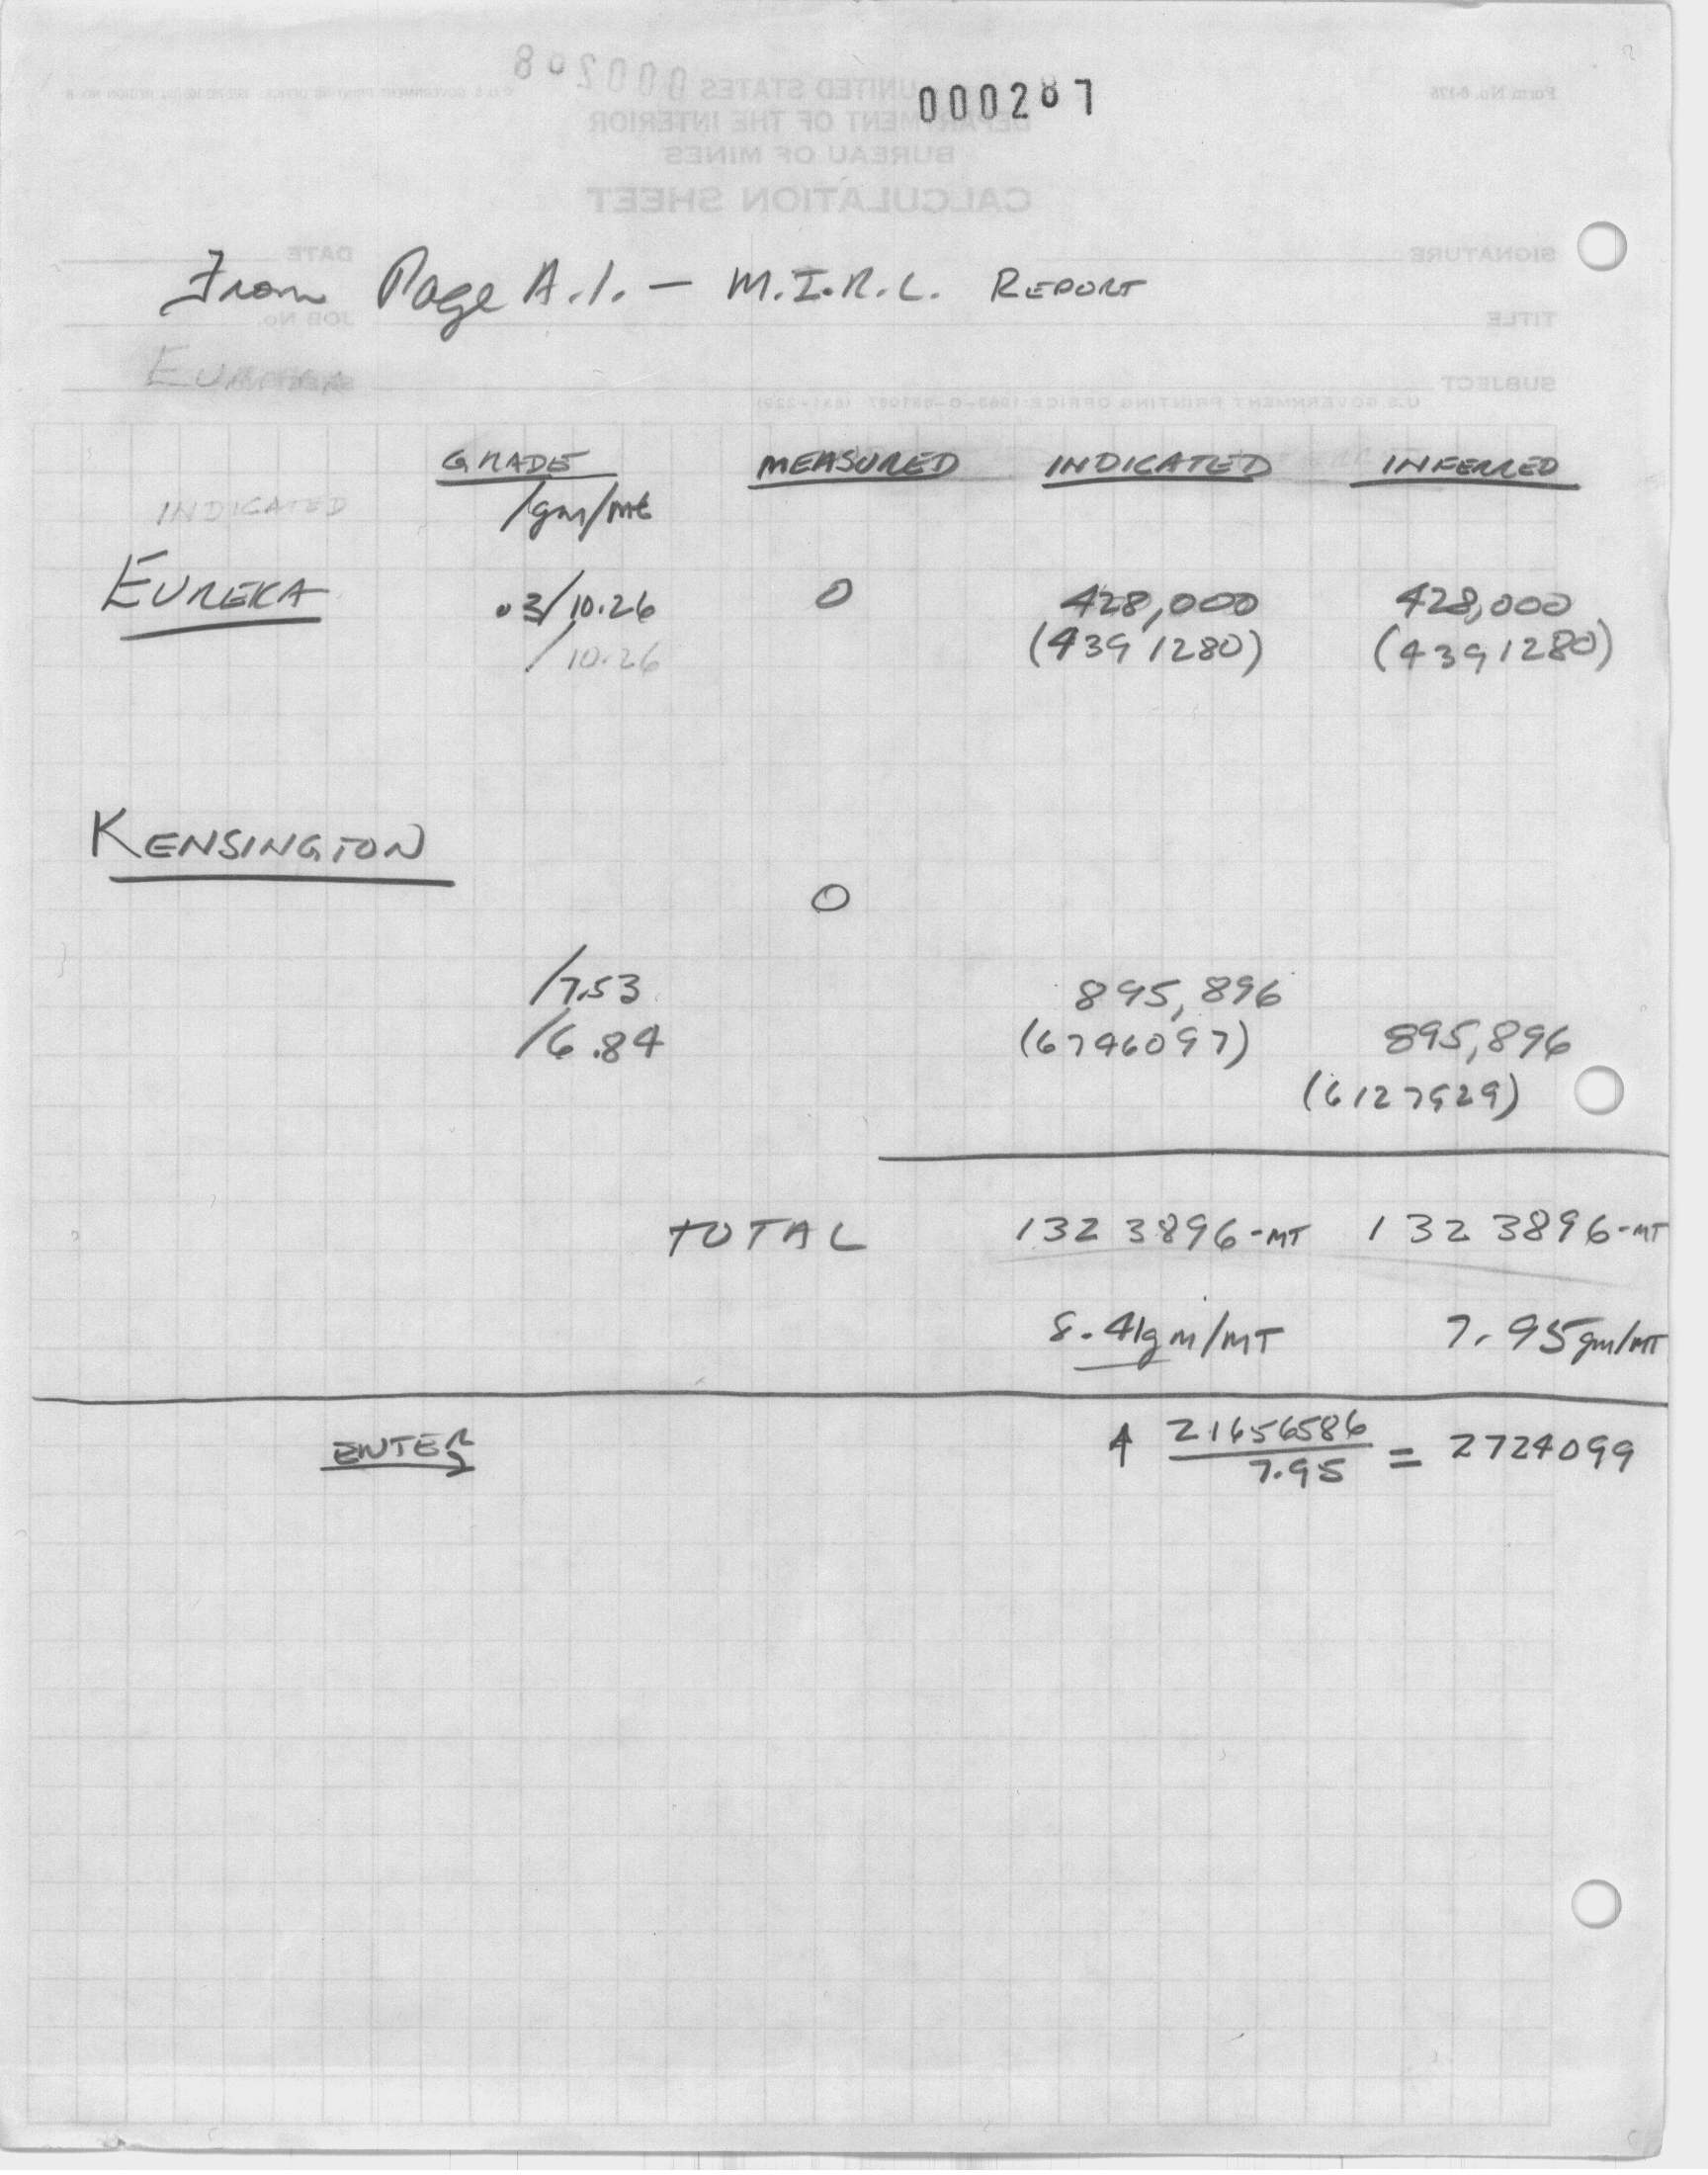 000287
From Page A.1. — M.I.R.L. REPORT
EUREKA
GRADE MEASURED INDICATED INFERRED
INDICATED /gm/mt
EUREKA .3/10.26 0 428,000 428,000
/10.26 (4391280) (4391280)
KENSINGTON
0
/7.53 895,896
/6.84 (6746097) 895,896
(6127929)
TOTAL 1323896-MT 1323896-MT
8.41gm/MT 7.95gm/MT
ENTER ↑ 21656586 / 7.95 = 2724099